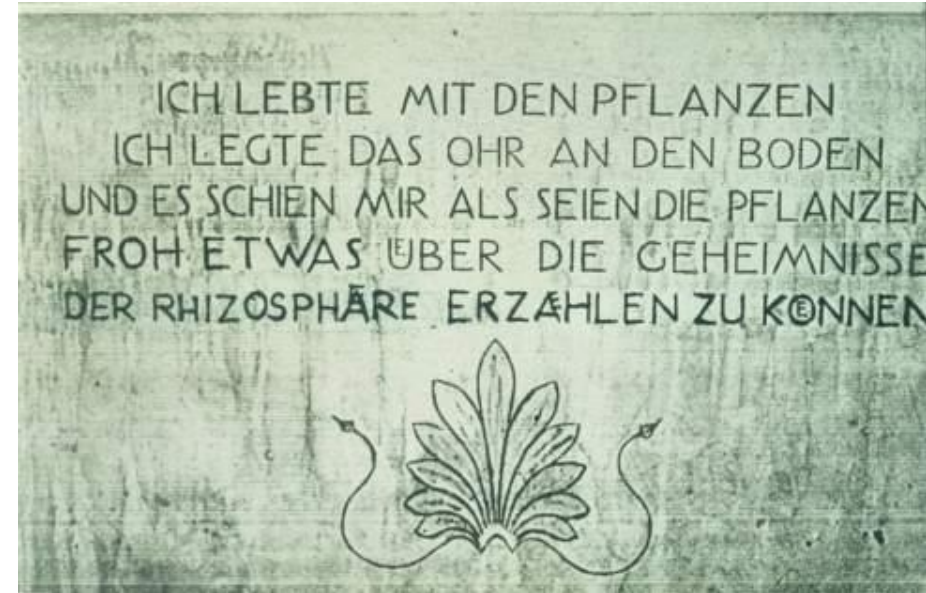 ICH LEBTE MIT DEN PFLANZEN
ICH LEGTE DAS OHR AN DEN BODEN
UND ES SCHIEN MIR ALS SEIEN DIE PFLANZEN
FROH ETWAS ÜBER DIE GEHEIMNISSE
DER RHIZOSPHÄRE ERZÆHLEN ZU KŒNNEN